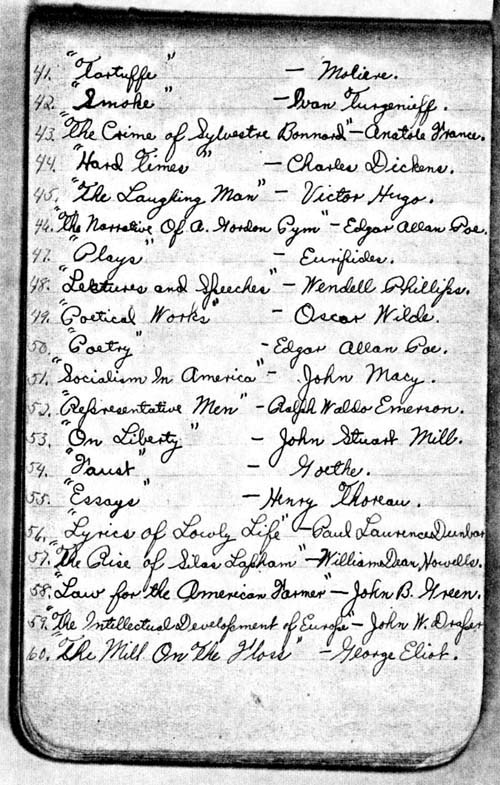 41. "Tartuffe" — Moliere.
42. "Smoke" — Ivan Turgenieff.
43. "The Crime of Sylvestre Bonnard" — Anatole France.
44. "Hard Times" — Charles Dickens.
45. "The Laughing Man" — Victor Hugo.
46. "The Narrative Of A. Gordon Pym" — Edgar Allan Poe.
47. "Plays" — Euripides.
48. "Lectures and Speeches" — Wendell Phillips.
49. "Poetical Works" — Oscar Wilde.
50. "Poetry" — Edgar Allan Poe.
51. "Socialism In America" — John Macy.
52. "Representative Men" — Ralph Waldo Emerson.
53. "On Liberty" — John Stuart Mill.
54. "Faust" — Goethe.
55. "Essays" — Henry Thoreau.
56. "Lyrics of Lowly Life" — Paul Laurence Dunbar
57. "The Rise of Silas Lapham" — William Dean Howells.
58. "Law for the American Farmer" — John B. Green.
59. "The Intellectual Development of Europe" — John W. Draper
60. "The Mill On The Floss" — George Eliot.